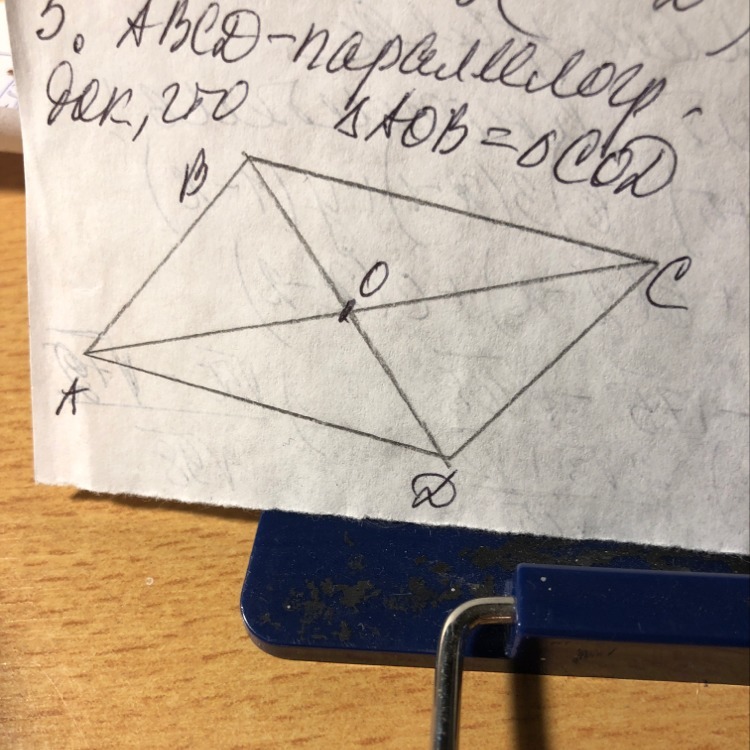 5. ABCD-параллелогр.
Док, что ΔAOB=ΔCOD
B
O
C
A
D